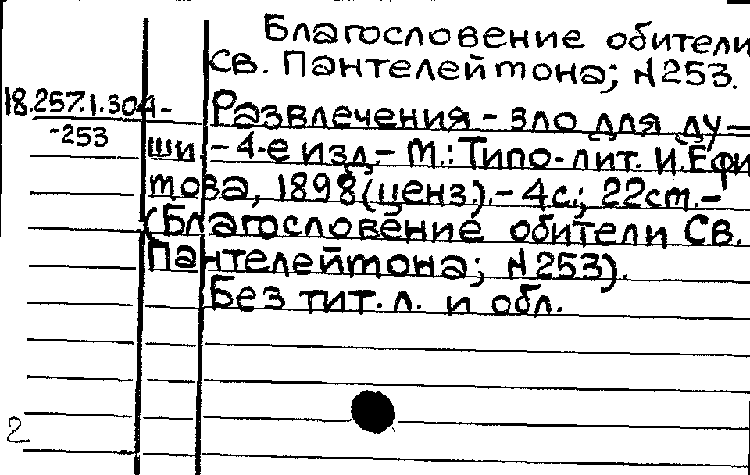 Благословение обители
Св. Пантелеймона; N 253.
18.257.1.304-
-253
Развлечения - зло для ду=
ши. - 4-е изд. - М.: Типо-лит. И. Ефи
мова, 1898 (ценз.). - 4 с.; 22 см. -
(Благословение обители Св.
Пантелеймона; N 253).
Без тит. л. и обл.
2